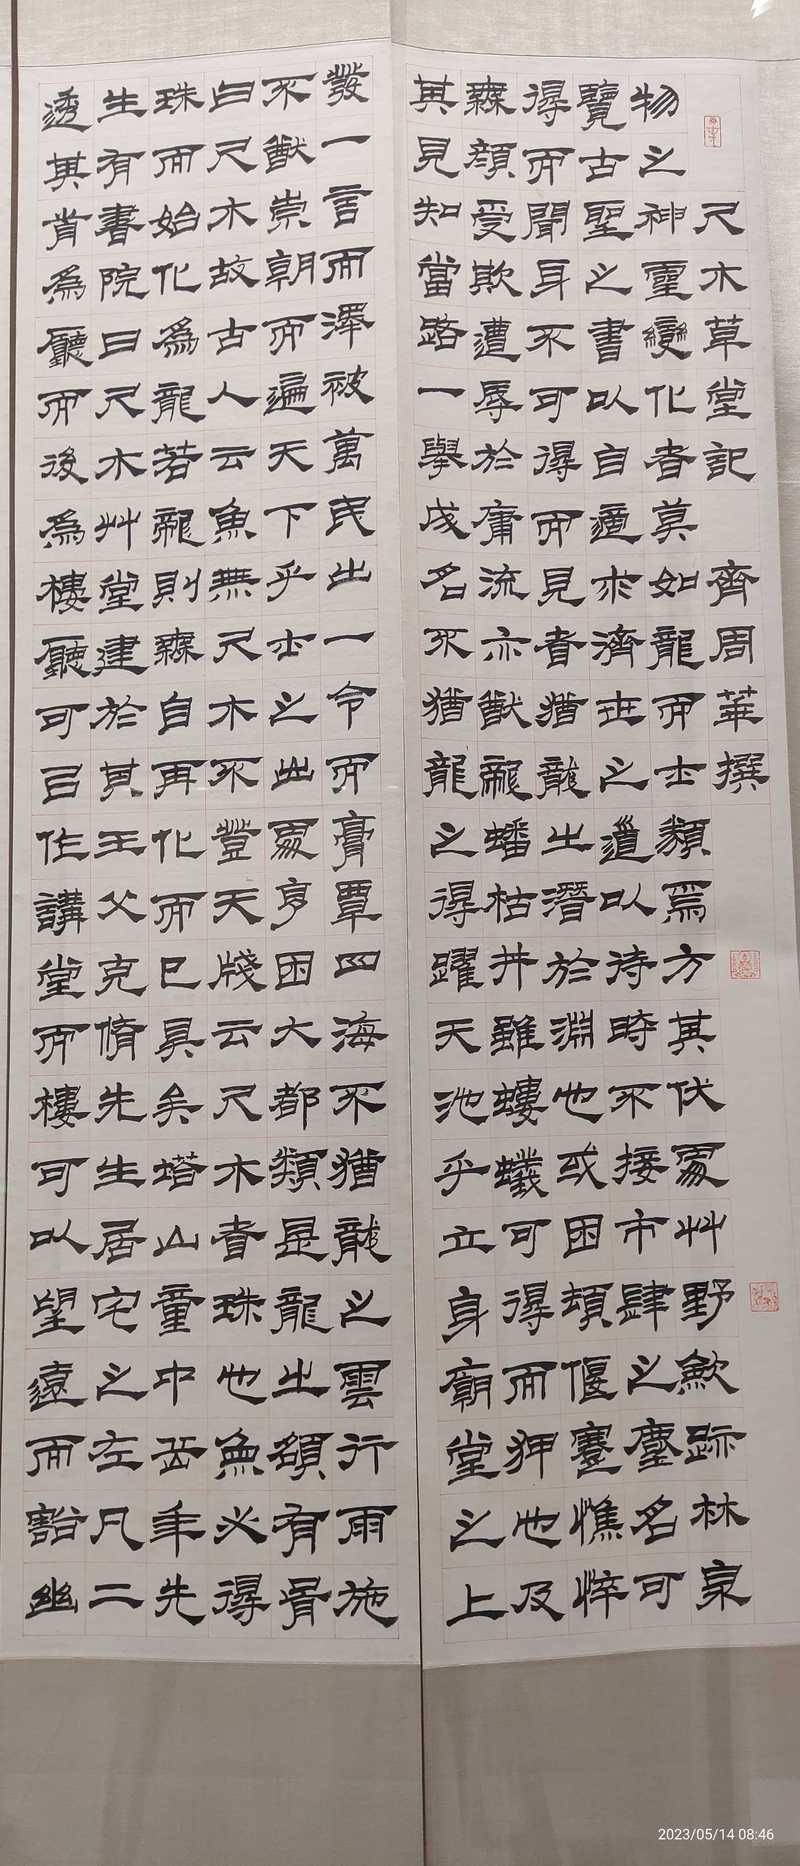 尺木草堂記 齊周華撰
物之神靈變化者莫如龍而士類焉方其伏處艸野歛跡林泉
覽古聖之書以自適求濟世之道以待時不接市肆之塵名可
得而聞身不可得而見者猶龍㞢潛於淵也或困頓偃蹇憔悴
無顏受欺遭辱於庸流亦猷龍蟠枯井雖螻蟻可得而狎也及
其見知當路一舉成名不猶龍之得躍天池乎立身廟堂之上
發一言而澤被萬民出一令而膏覃四海不猶龍之雲行雨施
不猷崇朝而遍天下乎士之出處亨困大都類是龍㞢頟有骨
白尺木故古人云魚無尺木不豋天牋云尺木者珠也魚必得
珠而始化為龍若龍則無自再化而已具矣塔山童中岳年先
生有書院曰尺木艸堂建於其王父克脩先生居宅之左凡二
透其前為廳而後為樓廳可㠯作講堂而樓可以望遠而豁幽
2023/05/14 08:46